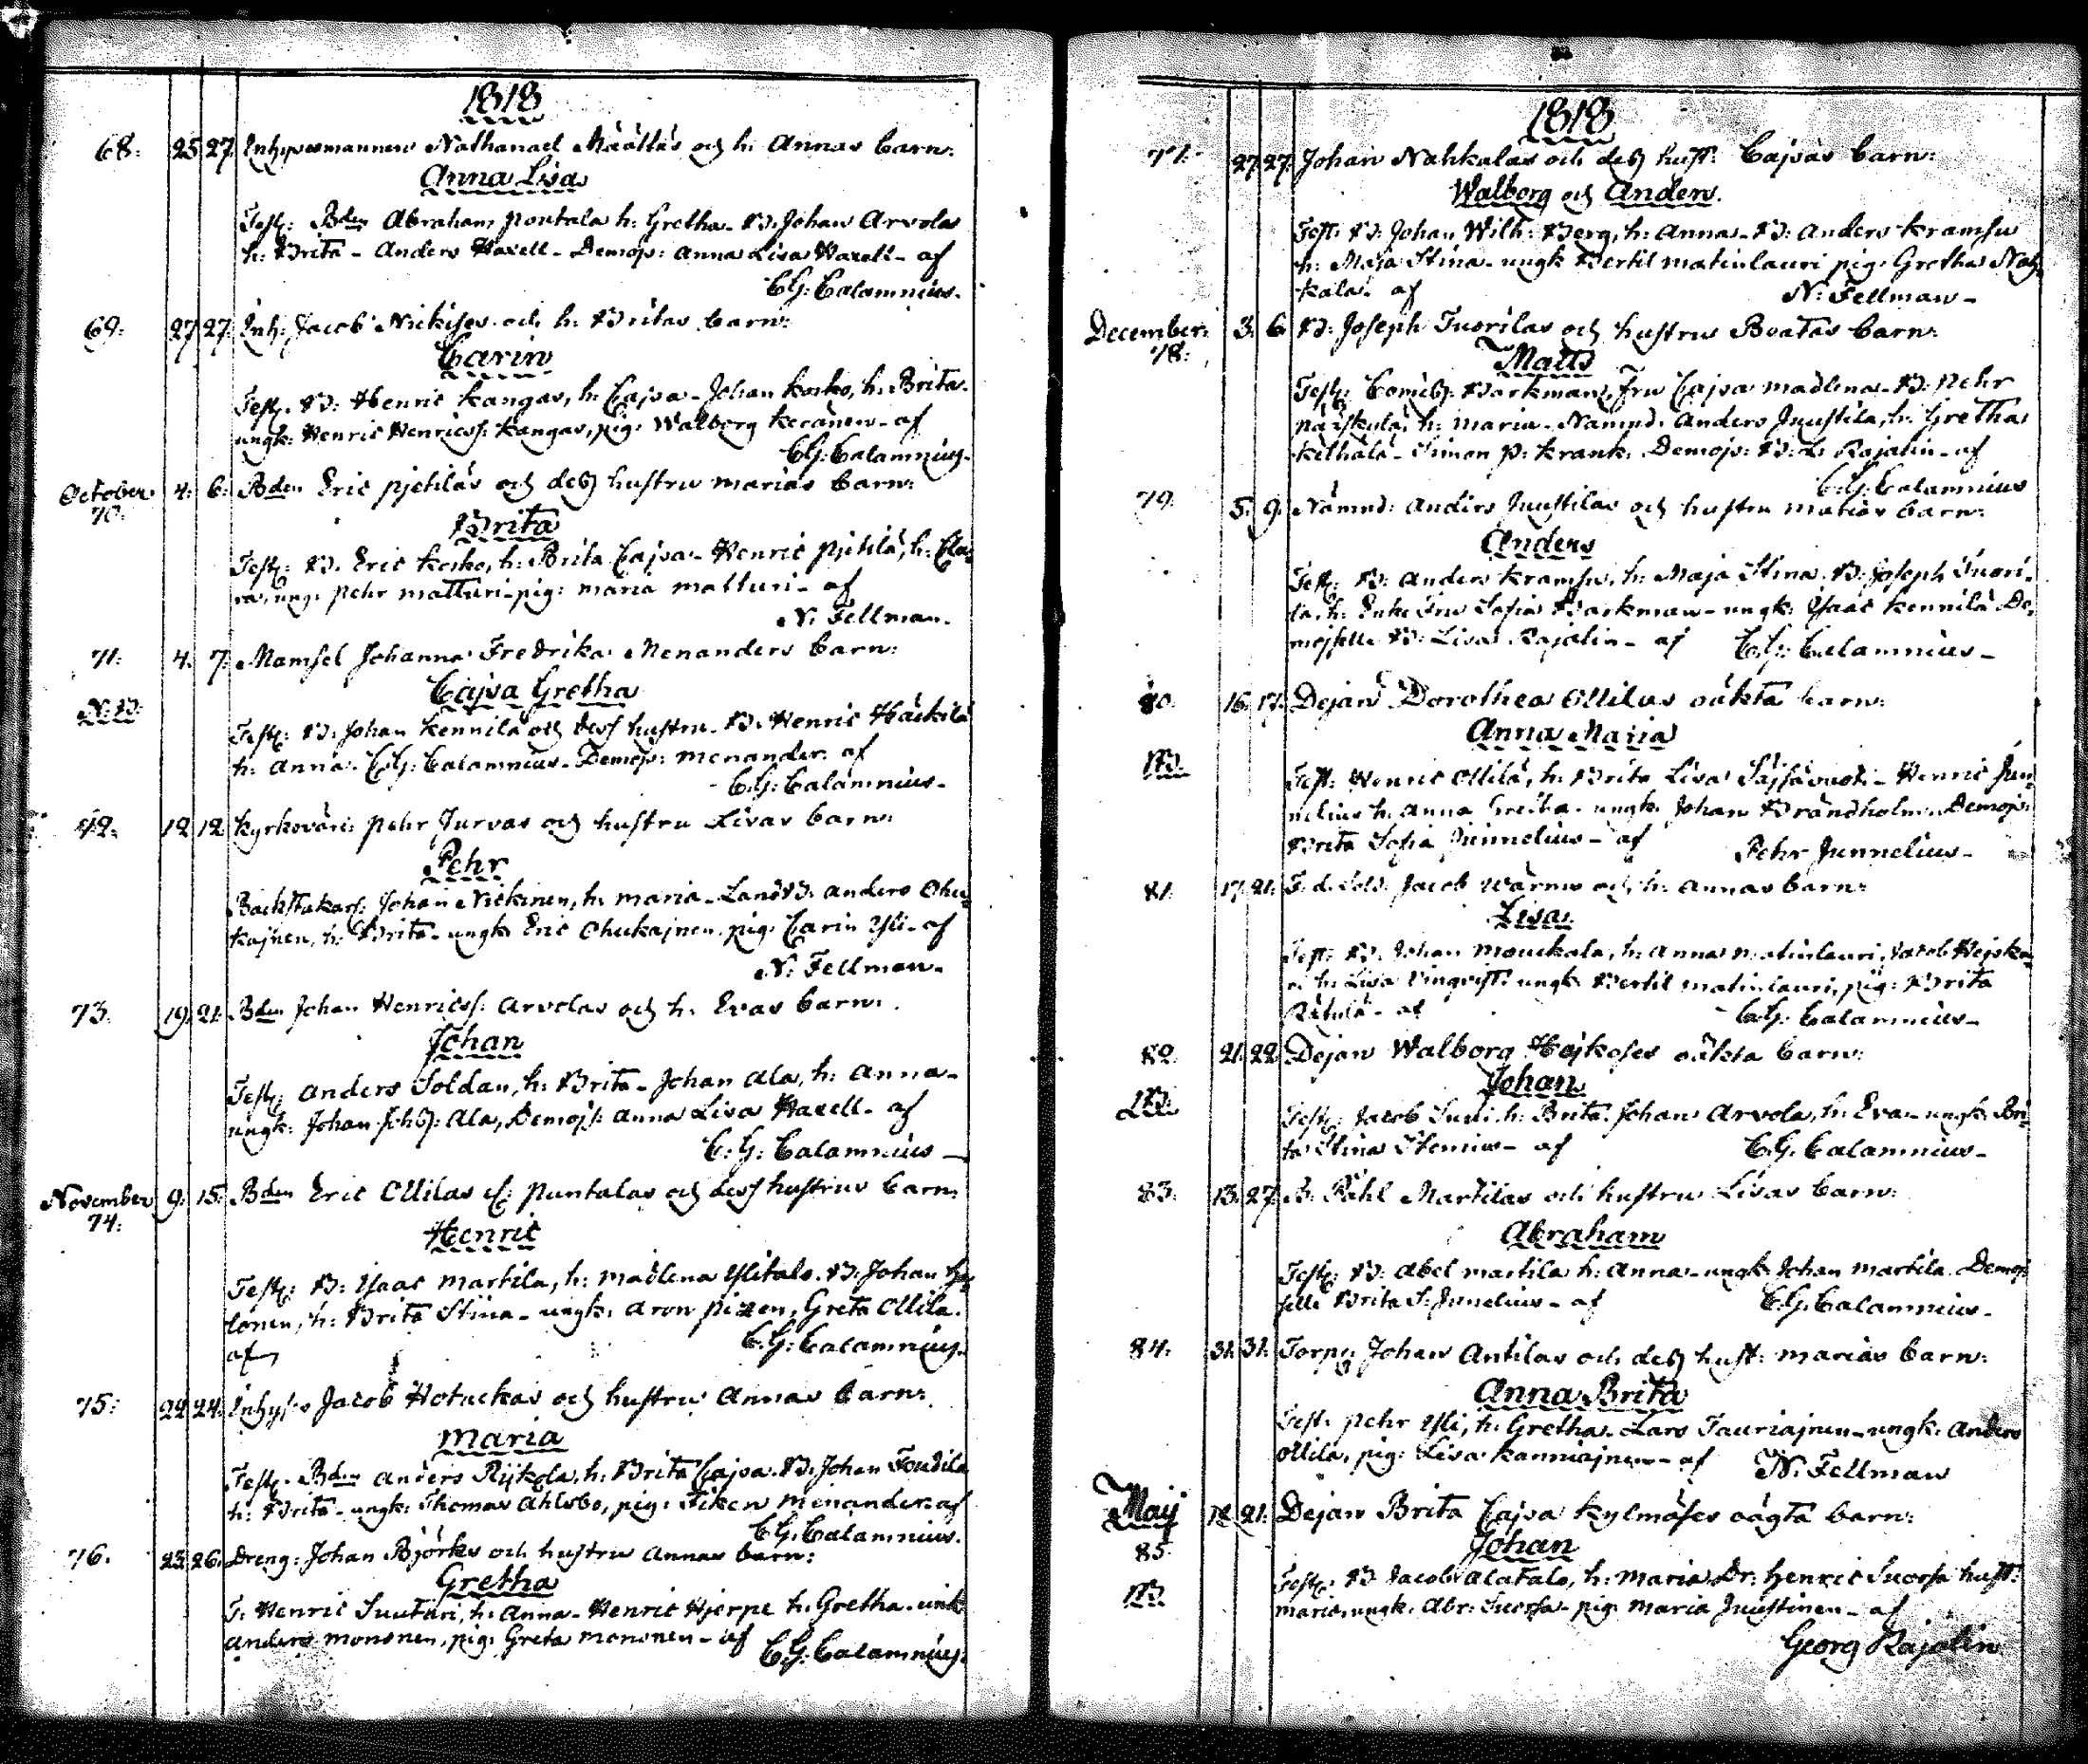 1818
68: 25 27. Inhysesmannen Nathanael Määttäs och h: Annas barn:
Anna Lisa
Test: Bden Abraham Pontala h: Gretha - B: Johan Arvola
h: Brita - Anders Waxell - Demois: Anna Lisa Waxell - af
C.G: Calamnius.
69: 27 27. Inh: Jacob Nickises och h: Britas barn:
Carin
Test: B: Henric Kangas, h: Cajsa - Johan Kosko, h: Brita.
ungk: Henric Henricss: Kangas, pig: Walborg Keränen - af
C.G: Calamnius.
October 4: 6: Bden Eric Pjetiläs och dess hustru Marias barn:
70.
Brita
Test: B. Eric Kosko, h: Brita Cajsa - Henric Pjetilä, h: Cla-
ra, ung: Pehr Matturi - pig: Maria Matturi - af
N: Fellman.
71: 4. 7: Mamsel Johanna Fredrika Menanders barn:
Cajsa Gretha
N.B.
Test: B: Johan Kennilä och dess hustru - B. Henric Häckilä
h: Anna - C.G: Calamnius - Demois: Menander: af
C.G: Calamnius.
72. 12 12 Kyrkovärd: Pehr Jurvas och hustru Lisas barn:
Pehr
Backstukars: Johan Nickinen, h: Maria - LandB: Anders Ohu-
kajnen, h: Brita - ungk: Eric Ohukajnen. pig: Carin Yli - af
N: Fellman.
73. 19. 21. Bden Johan Henricss: Arvolas och h: Evas barn:
Johan
Test: Anders Soldan, h: Brita - Johan Ala, h: Anna -
ungk: Johan Johss: Ala, Demois: Anna Lisa Waxell - af
C. G: Calamnius
November 9: 15. Bden Eric Ollilas Puntalas och dess hustrus barn:
74:
Henric
Test: B: Isaac Martila, h: Madlena Ylitalo. B: Johan
lonen, h: Brita Stina - ungk: Aron Pizzen, Greta Ollila.
af C.G: Calamnius.
75: 22 24. Inhyses Jacob Hotuckas och hustru Annas barn:
Maria
Test: Bden Anders Rijkola, h: Brita Cajsa. B: Johan Foudila
h: Brita - ungk: Thomas Ahlsbo, pig: Fiken Menander. af
C.G: Calamnius.
76. 25. 26. Dreng: Johan Björks och hustru Annas barn:
Gretha
T. Henric Suuturi, h: Anna - Henric Hjerpe h: Gretha - unk
Anders Mononen, pig: Greta Mononen - af C.G: Calamnius.
1818
77: 27 27. Johan Nahkalas och dess hust: Cajsas barn:
Walborg och Anders.
Test: B: Johan Wilh: Berg, h: Anna - B: Anders Kramsu
h: Maja Stina - ungk Bertil Matinlauri pig: Gretha Nah-
kala - af N: Fellman -
December: 3. 6. B: Joseph Tuorilas och hustru Beatas barn:
78:
Matts
Test: Barkman, Fru Cajsa Madlena - B: Pehr
h: Maria - Nämnd: Anders Juustila, h: Gretha
Simon P: Krank. Demois: B: L: Rajalin - af
C.G: Calamnius
79. 5. 9. Nämnd: Anders Juustilas och hustru Marias barn:
Anders
Test: B: Anders Kramsu, h: Maja Stina. B: Joseph Tuori-
la, h: Enke Fru Sofia Barkman - ungk: Isaac Kennilä De-
mojselle B: Lisa Rajalin - af C.G: Calamnius -
80. 16. 17. Dejan Dorothea Ollilas oäkta barn:
Anna Maria
NB.
Test: Henric Ollila, h: Brita Lisa - Henric Jun-
nelius h: Anna Greta - ungk: Johan Brandholm. Demois:
Brita Sofia Junnelius - af Pehr Junnelius -
81. 17. 21. F. d. Sold: Jacob Wärms och h: Annas barn:
Lisa
Test: B. Johan Mouckala, h: Anna Matinlauri, Jacob Hejska-
h: Lisa Lingvist: ungk Bertil Matinlauri, pig: Brita
Rätula - af C.G: Calamnius -
82. 21. 22 Dejan Walborg Hejkoses oäkta barn:
Johan
NB.
Test: Jacob h: Brita. Johan Arvola, h: Eva - ungk: Bri-
ta Stina Stenius - af C.G. Calamnius -
83. 13. 27. B: Påhl Martilas och hustru Lisas barn:
Abraham
Test: B: Abel Martila h: Anna - ungk: Johan Martila. Demoj-
selle Brita S: Junelius - af C.G. Calamnius -
84. 31. 31. Torp: Johan Antilas och dess hust: Marias barn:
Anna Brita
Test: Pehr Yli, h: Gretha - Lars Tauriajnen - ungk: Anders
Ollila, pig: Lisa Kanniajnen - af N: Fellman
Maij 21: Dejan Brita Cajsa Kylmäses oägta barn:
85. Johan
NB.
Test: B Jacob Alatalo, h: Maria, Dr: Henric Suorsa hust:
Maria, ungk: Abr: Suorsa - pig: Maria Juustinen - af
Georg Rajalin